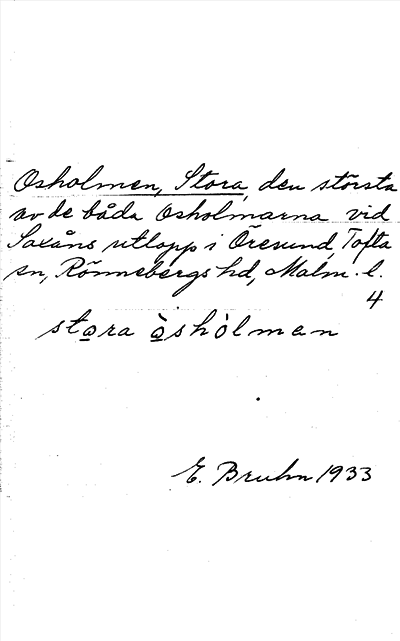 Osholmen, Stora, den största
av de båda Osholmarna vid
Saxåns utlopp i Öresund, Tofta
sn, Rönnebergs hd, Malm. l.
4
sto̲ra ò̲shòlmen
E. Bruhn 1933